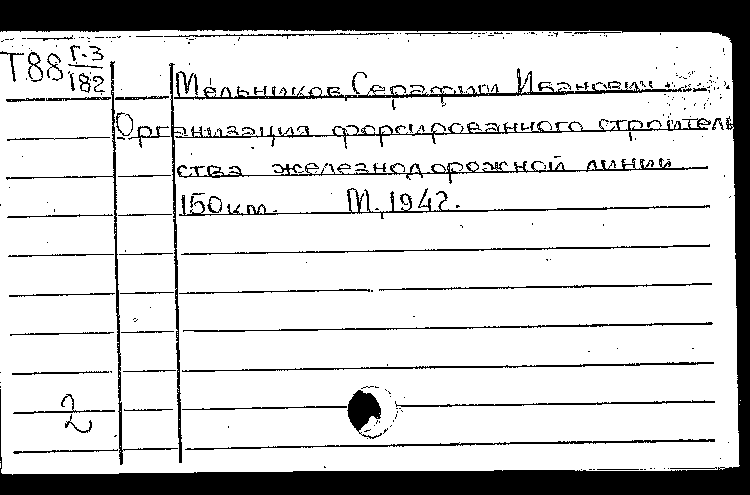 Т88 Г-3
182
Мельников, Серафим Иванович.
Организация форсированного строитель
ства железнодорожной линии
150 км. М., 1942.
2